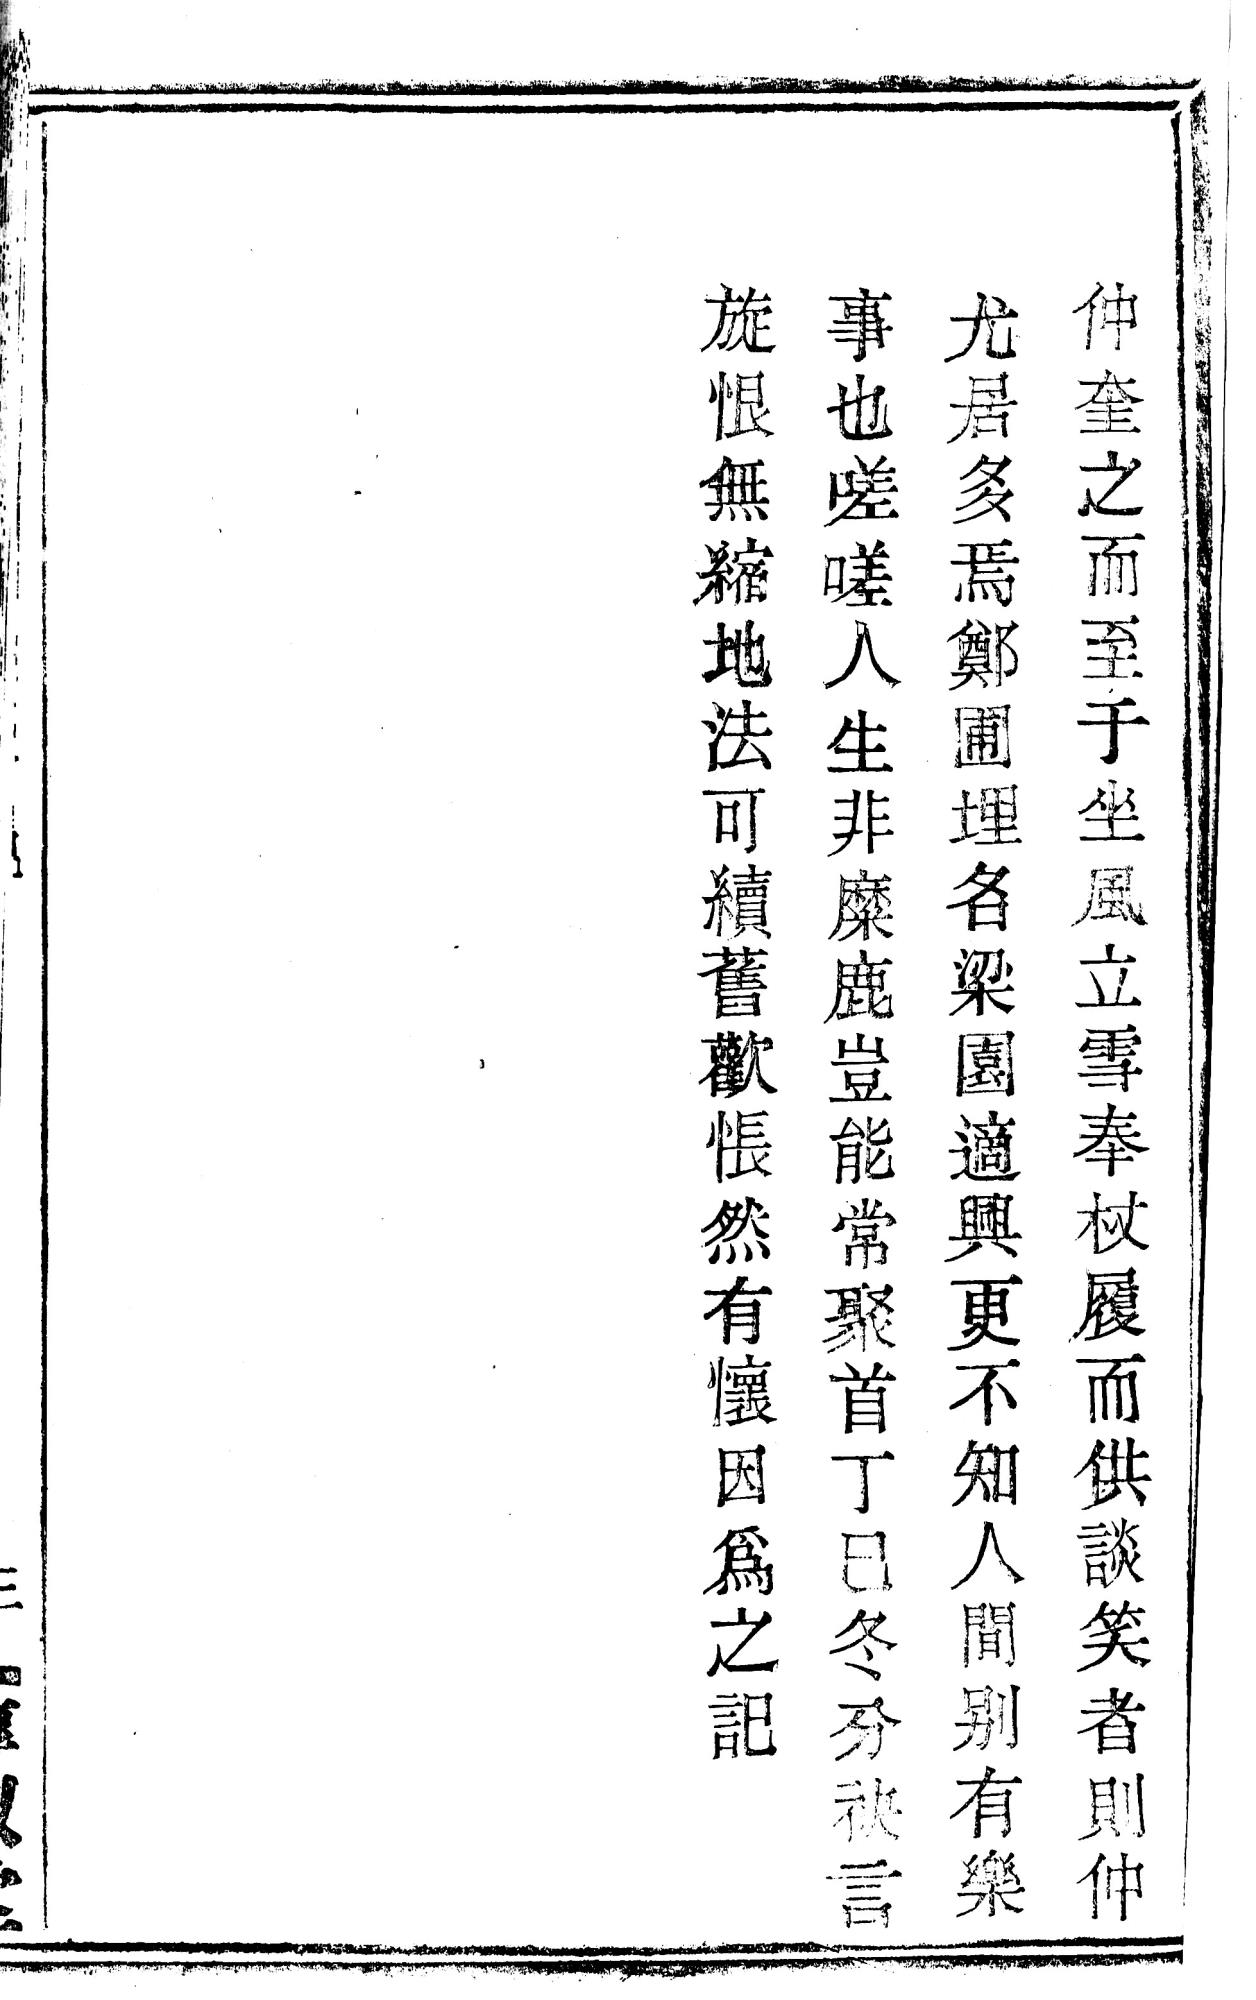 仲奎之而至于坐風立雪奉杖履而供談笑者則仲
尤居多焉鄭圃埋名梁園適興更不知人間别有樂
事也嗟嗟人生非麋鹿豈能常聚首丁巳冬分袂言
旋恨無縮地法可續舊歡悵然有懷因爲之記